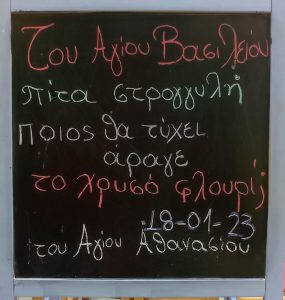 Του Αγίου Βασιλείου
πίτα στρογγυλή
ποιος θα τύχει
άραγε
το χρυσό φλουρί;
18-01-23
του Αγίου Αθανασίου